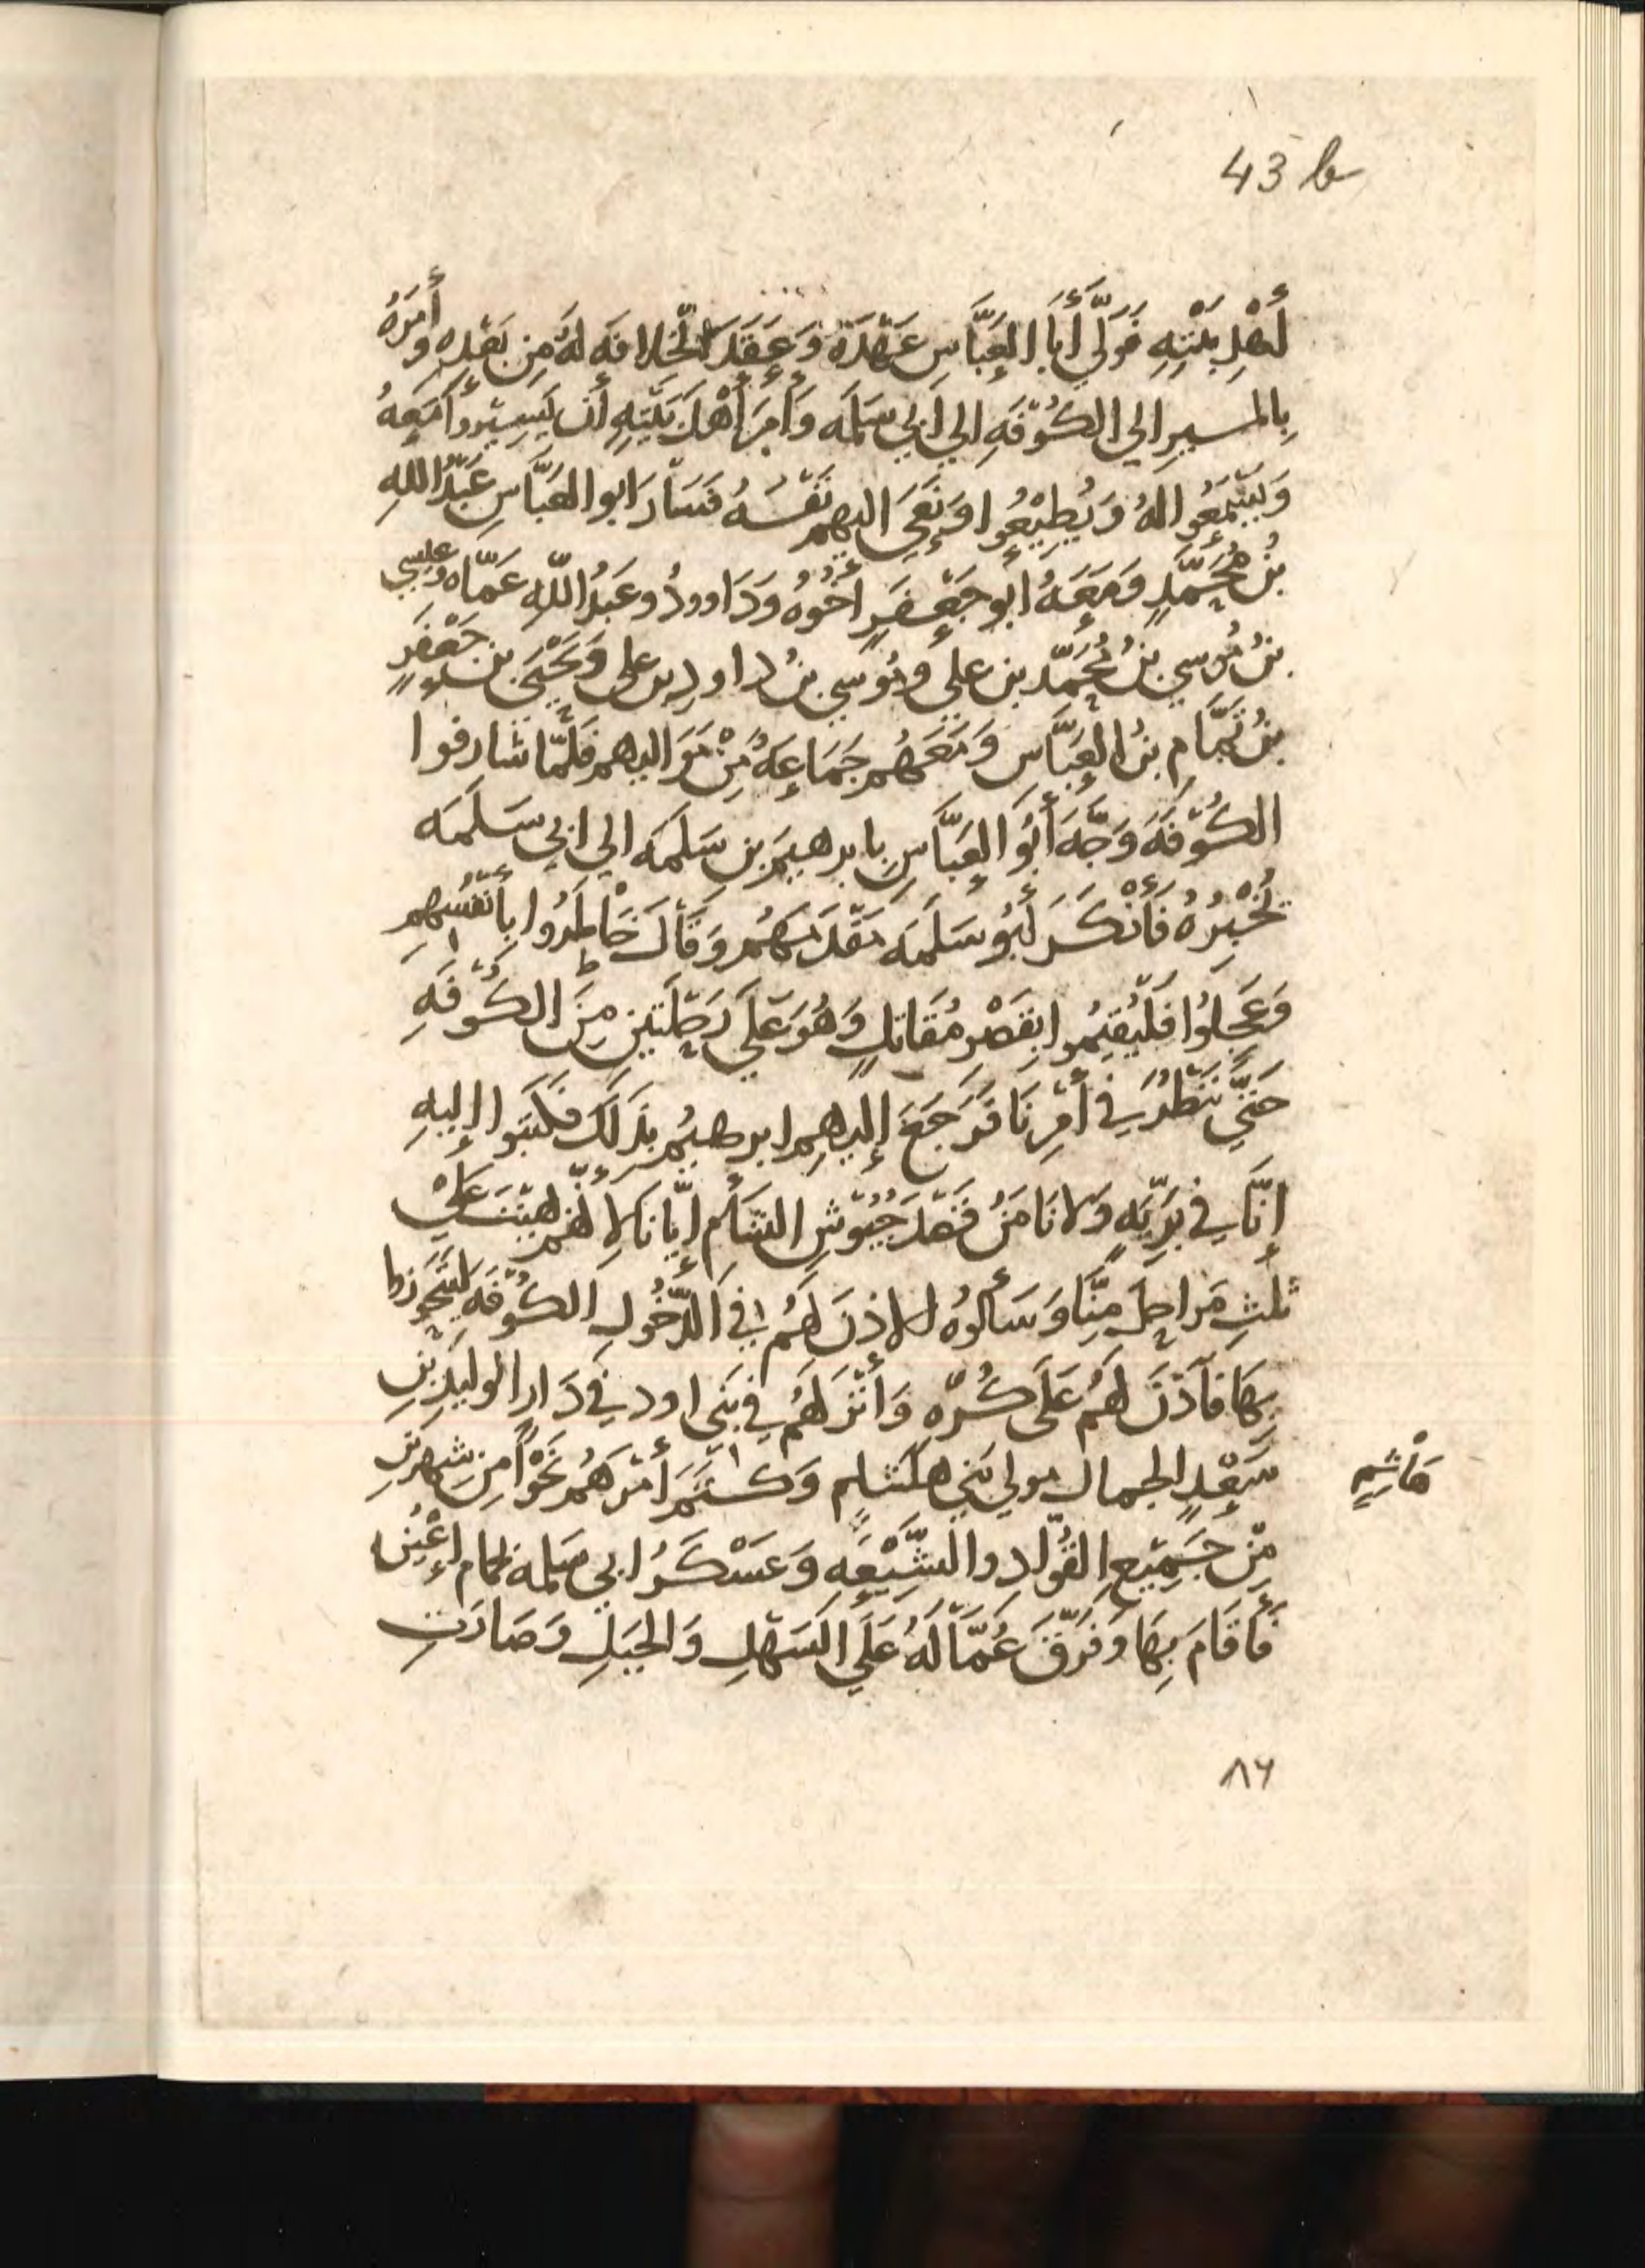 43 b
أَهْلِ بَيْتِهِ فَوَلَّي أَبَا العَبَّاسِ عَهْدَهُ وَعَقَدَ الْخِلافَه لَهُ مِن بَعْدِهِ وأَمَرَهُ
بِالمسيرِ الي الكُوْفَهِ الي أَبِي سَلَمَه وَأَمَرَ أَهْلَ بَيْتِهِ أن يَسِيْرُوأ مَعَهُ
وَيَسْمَعُوا لهُ وَيُطِيْعُوا وَنَعَي اليهم نَفْسَهُ فَسَارَ ابو العَبَّاسِ عَبْدُ اللهِ
بْنُ مُحَمَّدٍ وَمَعَهُ ابو جَعْفَرٍ أَخُوهُ وَدَاوودُ وعَبدُ اللهِ عَمَّاه وعيسي
بنُ مُوسي بنُ مُحَمَّد بن علي ومُوسي بنُ داودِ بن علي وَيَحْيَي بن جَعْفَرٍ
بنُ تَمَّامِ بنُ العَبَّاسِ وَمَعَهُم جَمَاعَهٌ مِنْ مَوَاليهم فَلَمَّا شارفوا
الكُوْفَهَ وَجَّهَ أَبُو العَبَّاسِ بابرهيمَ بن سَلَمَه الي ابي سَلَمَه
يُخْبِرُهُ فَأَنْكَرَ أَبُو سَلَمَه مَقْدَمَهُم وَقَالَ خَاطَرُوا بِأَنْفُسِهِم
وَعَجِلُوا فَلْيُقِيْمُوا بِقَصْرِ مُقَاتلٍ وَهُوَ عَلَي مَرْحَلَتَيْنِ مِنَ الكُوْفَهِ
حَتَّي نَنْظُرَ في أَمْرِنَا فَرَجَعَ إليهِم ابرهيمُ بذَلكَ فكتَبُوا إليهِ
انَّا في بَرِّيَّهٍ وَلا نَامَنُ قَصْدَ جُيُوْشِ الشَأمِ إيّانا لأنَّهم بهِيْتَ عَلَيْ
ثَلثِ مَراحِلَ مِنَّا وَسَألُوهُ الاذنَ لَهُمُ في الدُّخُولِ الكُوْفَهِ لِيتَحَرَّزوا
بِهَا فَأَذنَ لَهُم عَلَي كُرْهٍ وَأَنْزَلَهُم في بَنِي اود في دَارِ الوليدِ بنِ
سَعْدٍ الجمال مولي بَنِي هاشِمٍ وَكَتَمَ أَمْرَهُم نَحْوًا مِن شهرَيْنِ هَاشِمٍ
مِنْ جَمِيْعِ القُوَّادِ والشِّيْعَهِ وَعَسْكَرُ ابي سَلمه بحمام أَعْيَنَ
فَأَقَامَ بِهَا وَفَرَّقَ عُمَّالَهُ عَلَي السَهْلِ وَالجبَلِ وَصَارَتِ
٨٦